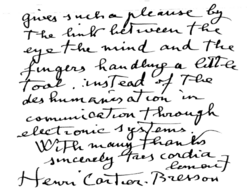 gives such a pleasure by
the link between the
eye the mind and the
fingers handling a little
tool. instead of the
deshumanisation in
comunication through
electronic systems.
With many thanks
sincerely tres cordia
lement
Henri Cartier-Bresson